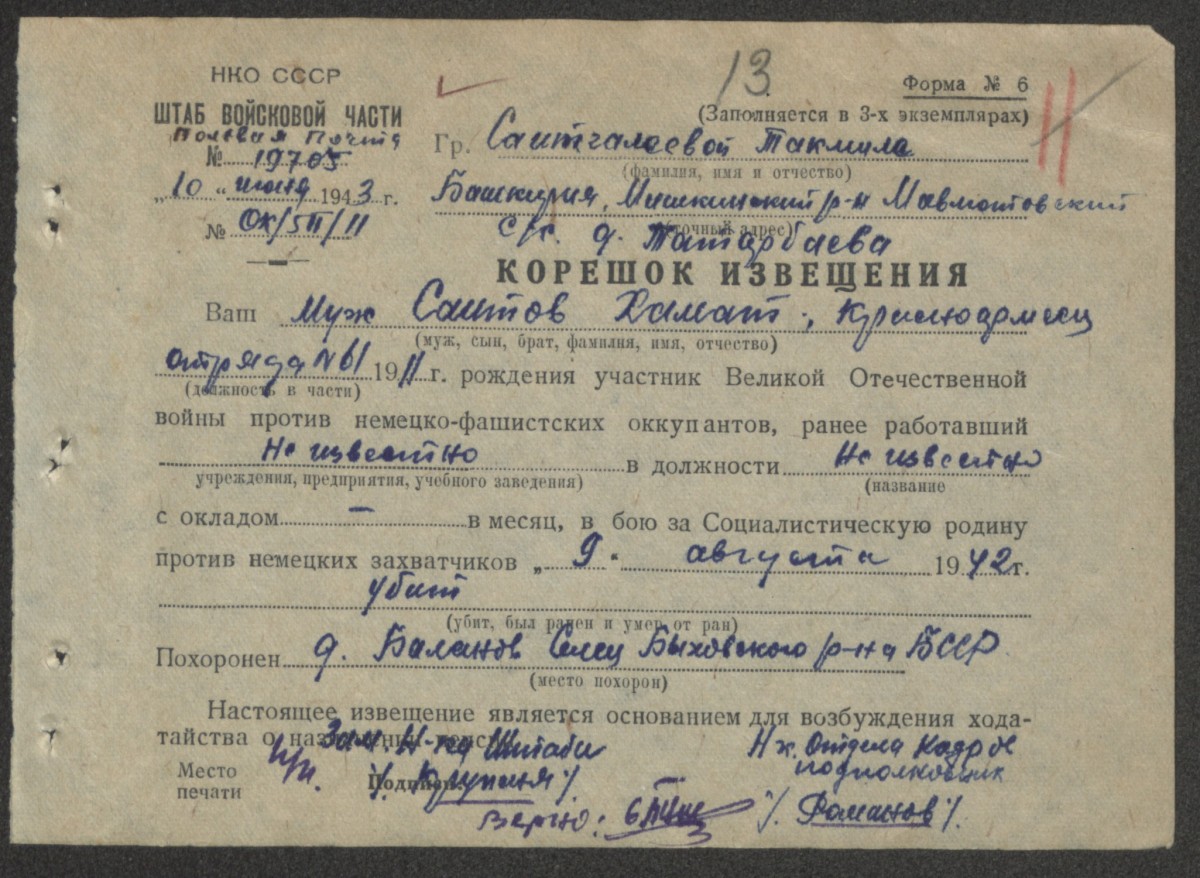 НКО СССР
ШТАБ ВОЙСКОВОЙ ЧАСТИ
Полевая Почта
№ 19705
"10" июня 1943 г.
№ ОК/5П/11
13.
Форма № 6
(Заполняется в 3-х экземплярах)
Гр. Саитгалеевой Такмила
(фамилия, имя и отчество)
Башкирия, Мишкинский р-н Мавлютовский
(точный адрес)
с/с. д. Татарбаева
КОРЕШОК ИЗВЕЩЕНИЯ
Ваш Муж Саитов Хамат, Красноармеец
(муж, сын, брат, фамилия, имя, отчество)
отряда N61 1911 г. рождения участник Великой Отечественной
(должность в части)
войны против немецко-фашистских оккупантов, ранее работавший
Не известно в должности Не известно
учреждения, предприятия, учебного заведения) (название
с окладом — в месяц, в бою за Социалистическую родину
против немецких захватчиков „9" августа 1942 г.
убит
(убит, был ранен и умер от ран)
Похоронен д. Баланов Селец Быховского р-на БССР.
(место похорон)
Настоящее извещение является основанием для возбуждения хода-
тайства о назначении пенсии
Зам. Н-ка Штаба
Нж. Отдела Кадров
подполковник
Место
печати
п/п.
Подпись
Верно:
/Романов/.